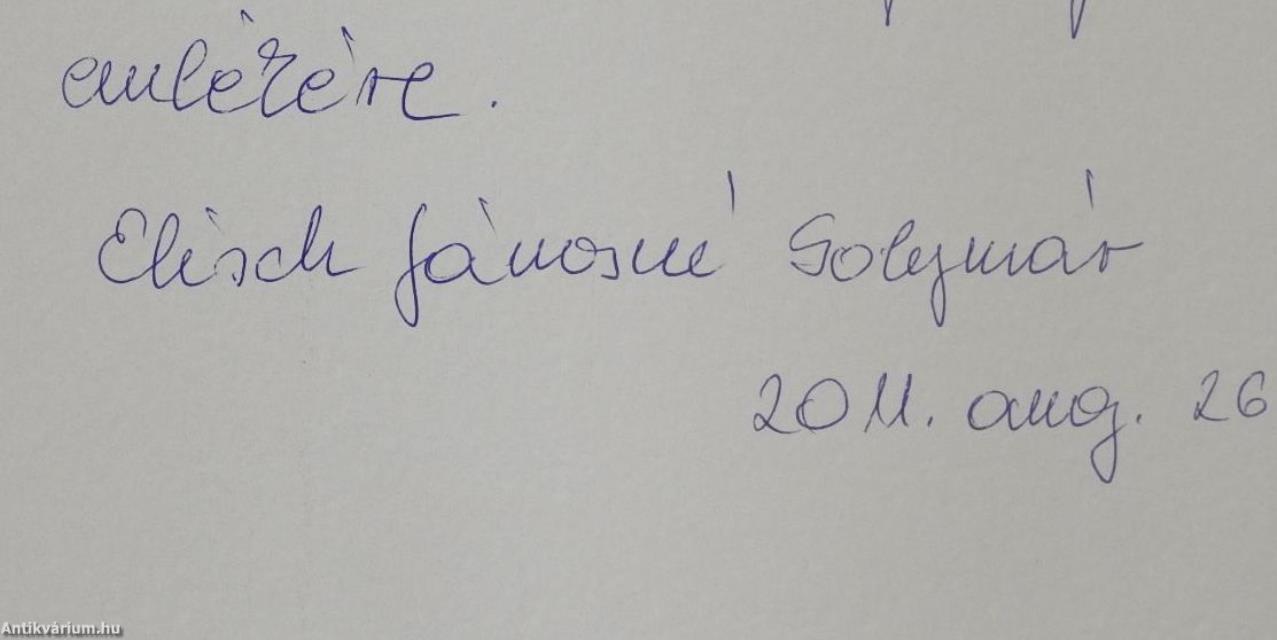 emlékére.
Elisch Jánosné Solymár
2011. aug. 26
Antikvárium.hu